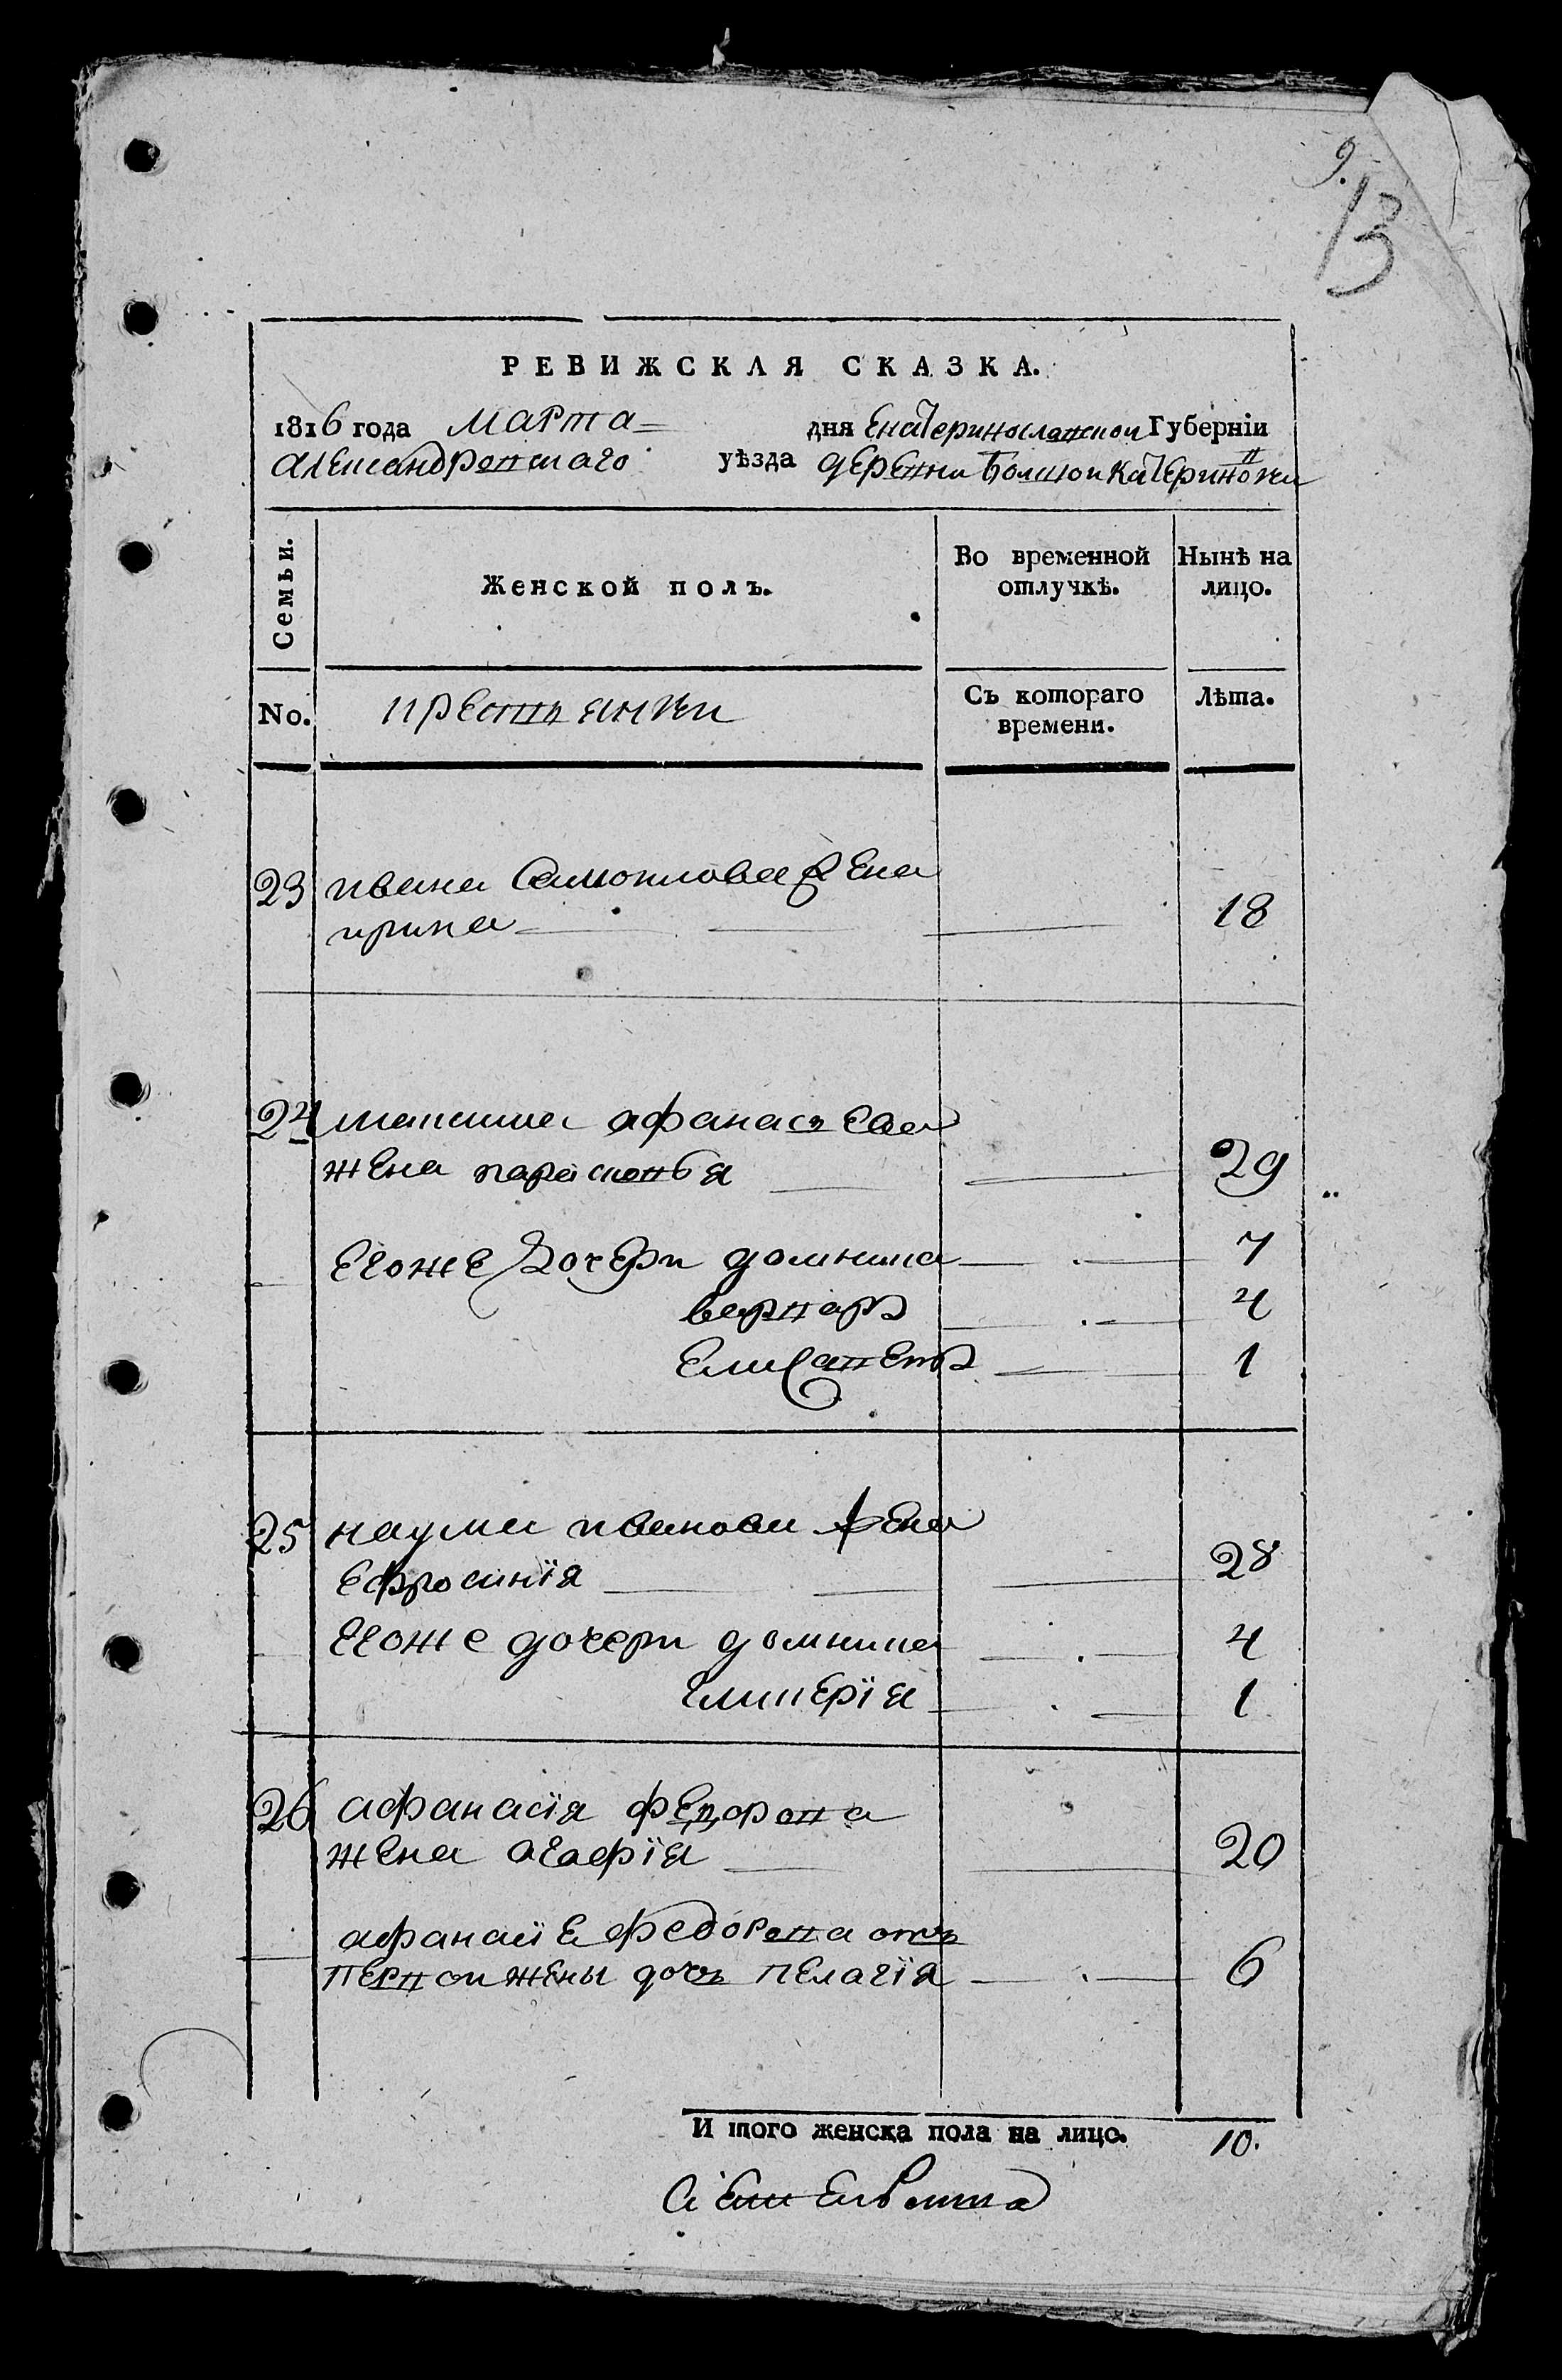 9.
13
РЕВИЖСКАЯ СКАЗКА.
1816 года марта дня Екатеринославской Губерніи
александровскаго уѣзда деревни Болшои Катериновки
Семьи. Женской полъ. Во временной отлучкѣ. Нынѣ на лицо.
No. крестьянки Съ котораго времени. Лѣта.
23 ивана Самоилова жена
ирина 18
24 максима афанасьева
жена парасковья 29
егоже дочери домникиа 7
варвара 4
Елисаветъ 1
25 наума иванова жена
Ефросинїя 28
егоже дочери домникиа 4
гликерїя 1
26 афанасїя федорова
жена агафїя 20
афанасїя федорова отъ
первои жены дочь пелагїя 6
И того женска пола на лицо. 10.